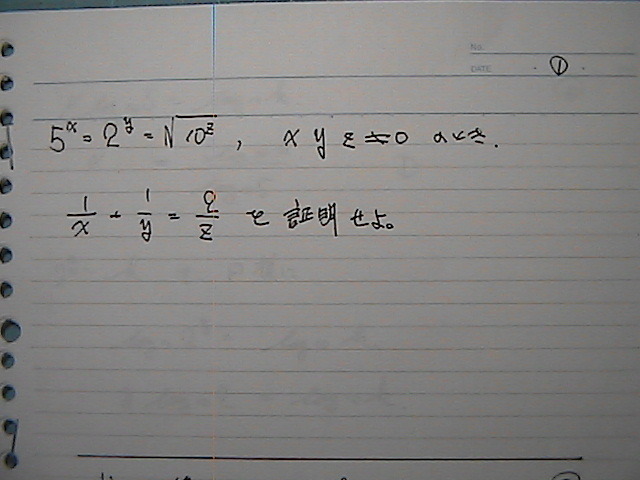 No.
DATE ・ ① ・
5^x = 2^y = √10^z , x y z ≠ 0 のとき.
1/x + 1/y = 2/z を 証明せよ。